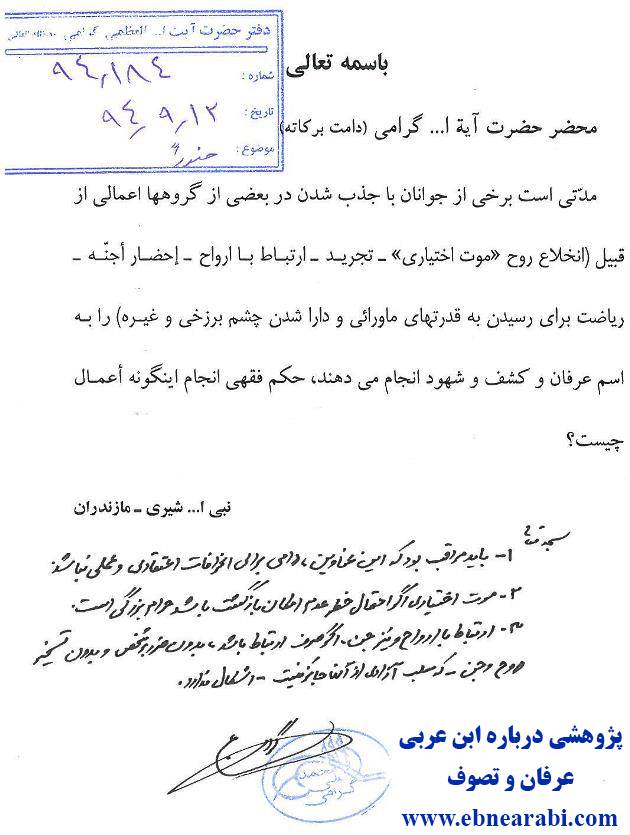 دفتر حضرت آیت ا... العظمی گرامی مدظله العالی
شماره : ۹٤٫۱۸٤
تاریخ : ۹٤٫۹٫۱۲
موضوع :
باسمه تعالی
محضر حضرت آیة ا... گرامی (دامت برکاته)
مدّتی است برخی از جوانان با جذب شدن در بعضی از گروهها اعمالی از
قبیل (انخلاع روح «موت اختیاری» ـ تجرید ـ ارتباط با ارواح ـ إحضار أجنّه ـ
ریاضت برای رسیدن به قدرتهای ماورائی و دارا شدن چشم برزخی و غیره) را به
اسم عرفان و کشف و شهود انجام می دهند، حکم فقهی انجام اینگونه أعمال
چیست؟
نبی ا... شیری ـ مازندران
بسمه تعالی
۱- باید مراقب بود که این عناوین، دامی برای انحرافات اعتقادی و عملی نباشد.
۲- موت اختیاری اگر احتمال خطر عدم امکان بازگشت باشد حرام بزرگی است.
۳- ارتباط با ارواح و نیز جن، اگر صرف ارتباط باشد، بدون ضرر بشخص و بدون تسخیر
روح و جن - که سلب آزادی از آنها جایز نیست - اشکال ندارد.
پژوهشی درباره ابن عربی
عرفان و تصوف
www.ebnearabi.com